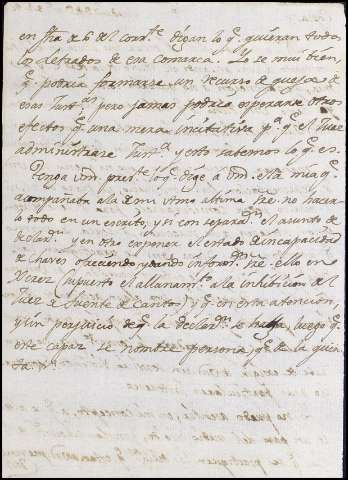 en fha de 6 del corr.te digan lo q.e quieran todos
los Letrados de esa Comarca. Yo se mui bien,
q.e podria formarse un recurso de quexa de
esas Just.as pero jamas podria esperarse otros
efectos q.e una mera incitativa p.a q.e el Juez
administrase Just.a y esto sabemos lo q.e es.
Tenga Vm pres.te lo q.e dige a Vm. en la mia q.e
acompañaba a la de mi ultima sre. no hacer
lo todo en un escrito, y si con separa.on el asunto de
declar.on y en otro exponer el estado de incapacidad
de Chaves ofreciendo, y dando inform.on sre. ello en
Xerez supuesto el allanam.to a la inhibicion del
Juez de Fuente de Cantos, y q.e en esta atencion,
y sin perjuicio de q.e la declar.on se haga, luego q.e
este capaz, se nombre persona, q.e de la quen
ta.